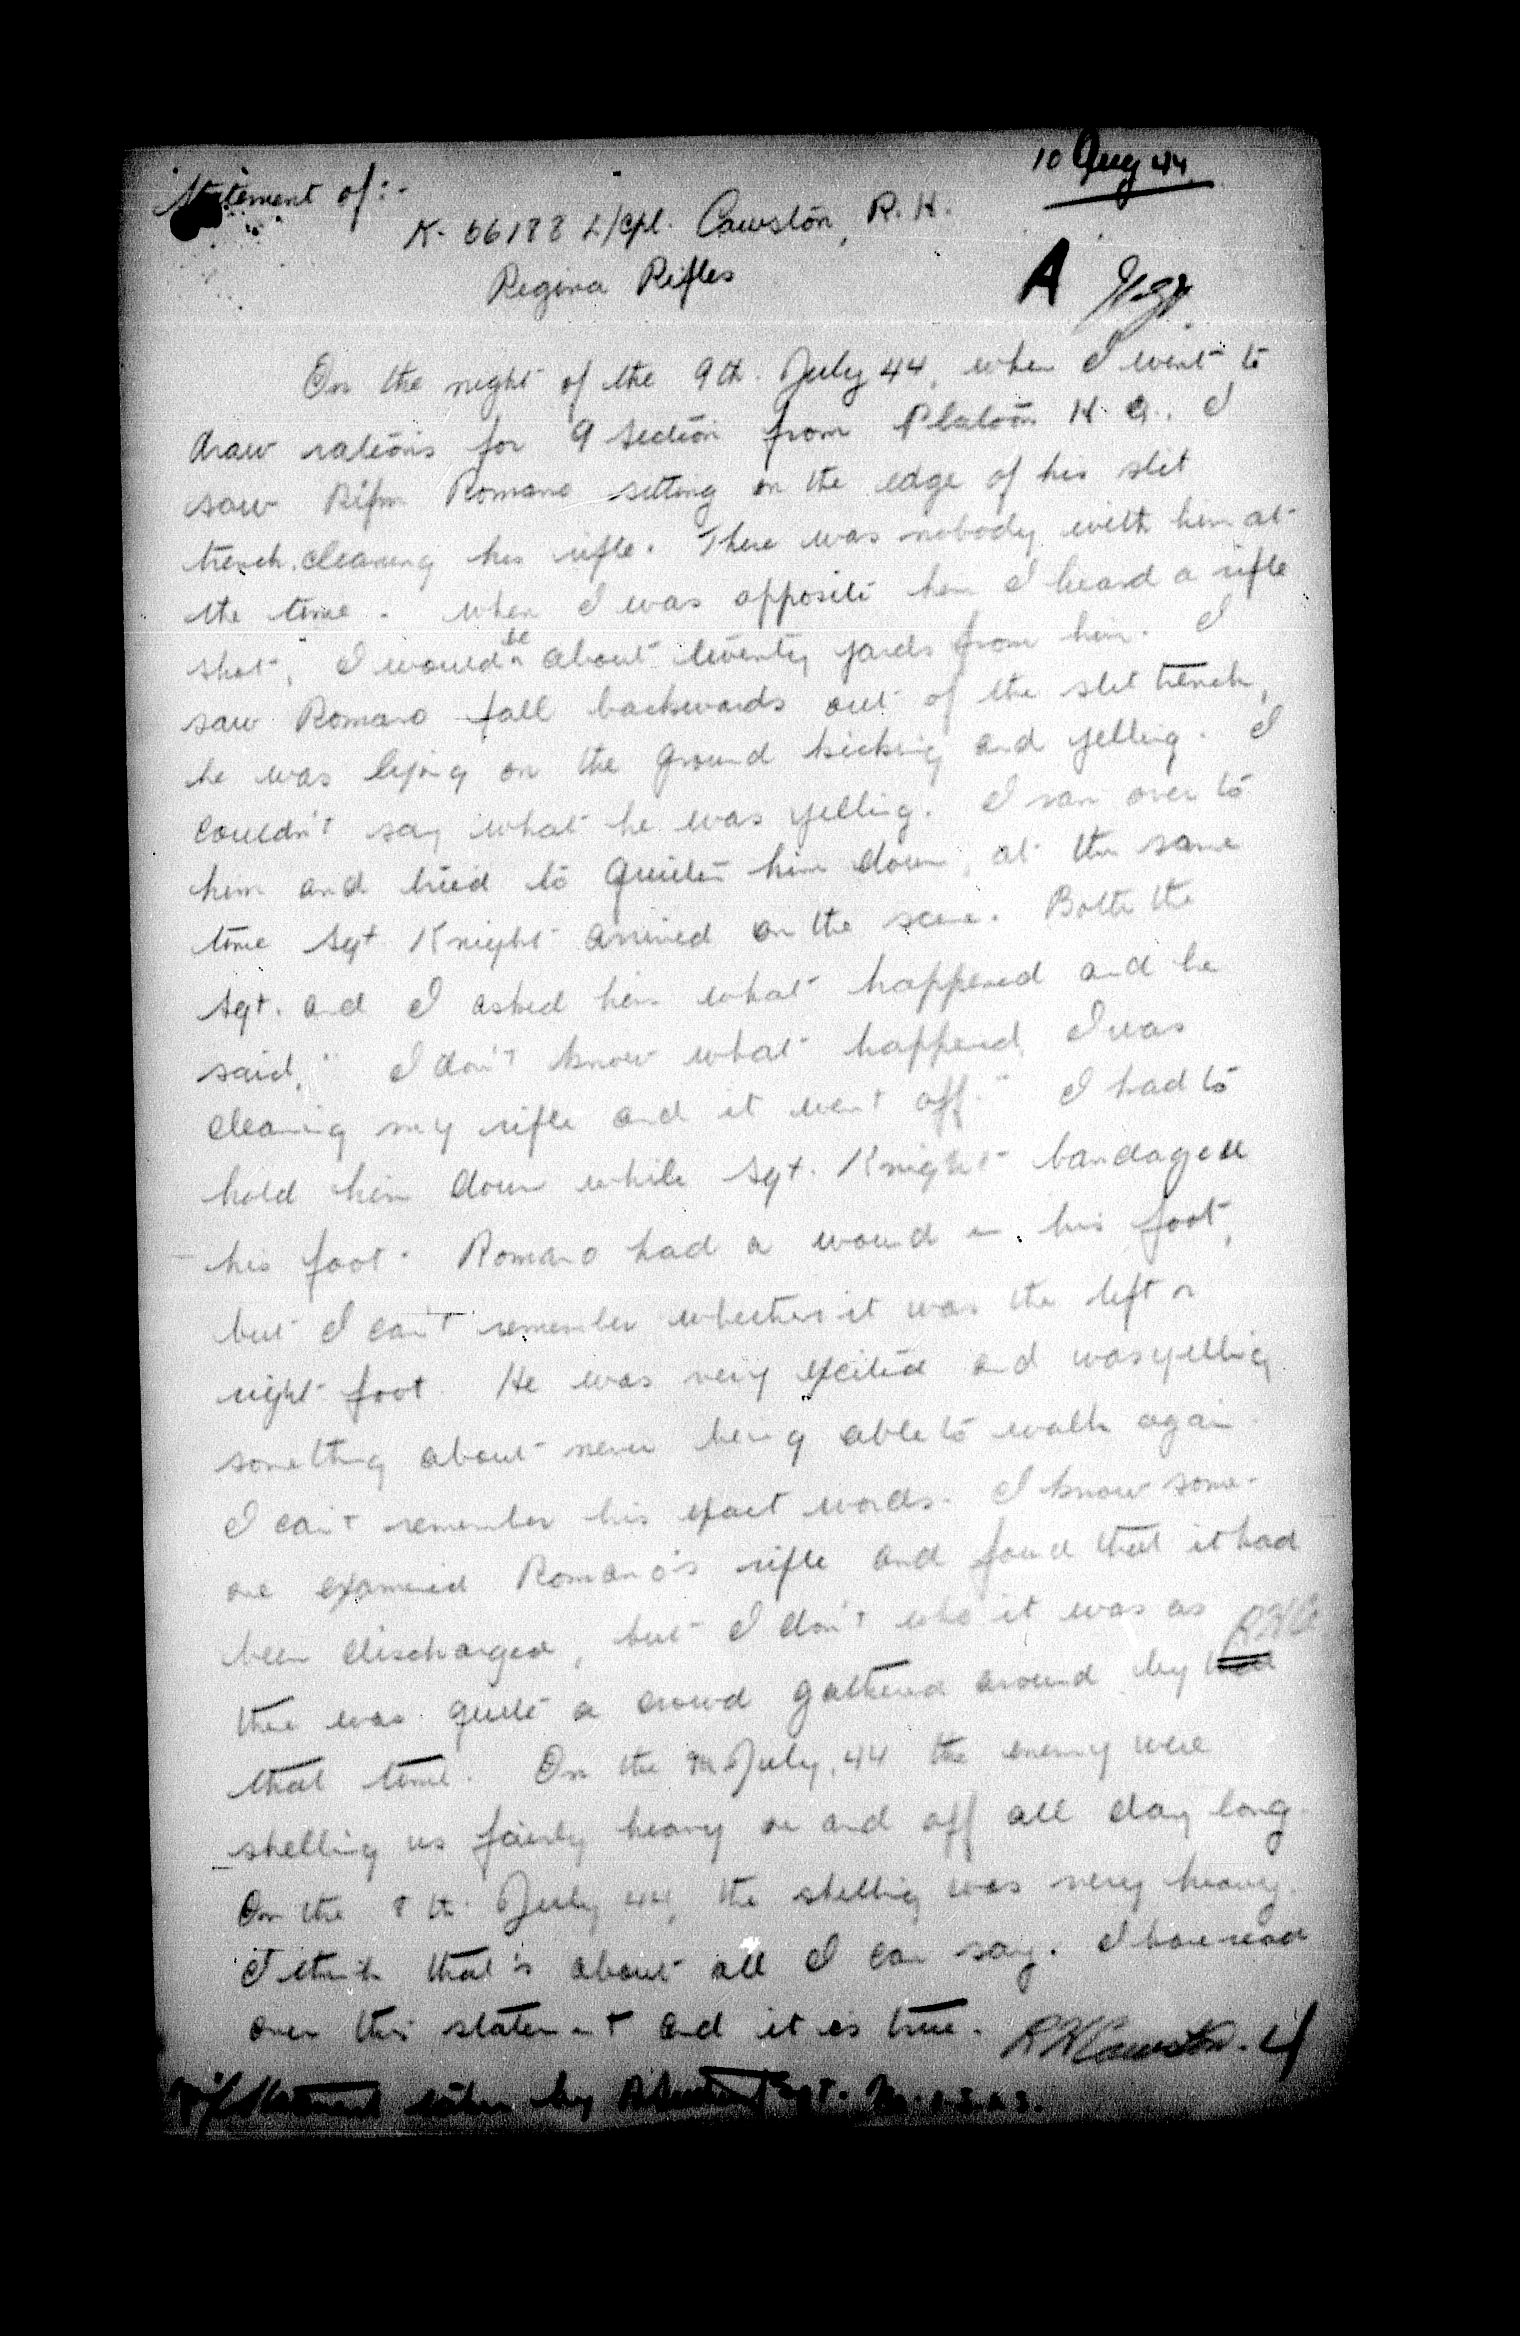 10 Aug 44
Statement of:-
K-66188 L/Cpl. Cawston, R.H.
Regina Rifles
A
On the night of the 9th. July 44, when I went to
draw rations for 9 section from Platoon H.Q. I
saw Rifm Romano sitting on the edge of his slit
trench, cleaning his rifle. There was nobody with him at
the time. When I was opposite him I heard a rifle
shot, I would be about twenty yards from him. I
saw Romano fall backwards out of the slit trench,
he was lying on the ground kicking and yelling. I
couldn't say what he was yelling. I ran over to
him and tried to quieten him down, at the same
time Sgt Knight arrived on the scene. Both the
Sgt. and I asked him what happened and he
said, "I don't know what happened, I was
cleaning my rifle and it went off." I had to
hold him down while Sgt. Knight bandaged
his foot. Romano had a wound in his foot,
but I can't remember whether it was the left or
right foot. He was very excited and was yelling
something about never being able to walk again.
I can't remember his exact words. I know some-
one examined Romano's rifle and found that it had
been discharged, but I don't who it was as RHC
there was quite a crowd gathered around by
that time. On the 9th July, 44 the enemy were
shelling us fairly heavy on and off all day long.
On the 8th. July 44, the shelling was very heavy.
I think that's about all I can say. I have read
over this statement and it is true. RH Cawston. L/
Statement taken by Sgt.